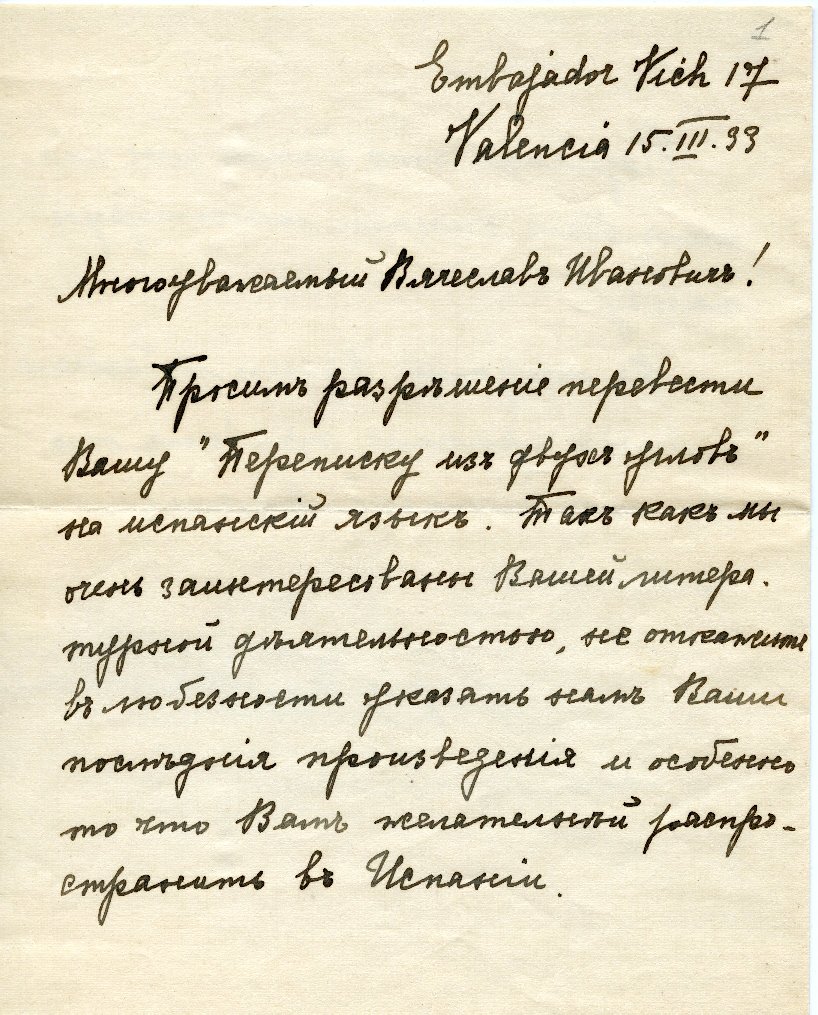 1
Embajador Vich 17
Valencia 15.III.33
Многоуважаемый Вячеславъ Ивановичъ!
Просимъ разрѣшеніе перевести
Вашу "Переписку изъ двухъ угловъ"
на испанскій языкъ. Такъ какъ мы
очень заинтересованы Вашей литера-
турной дѣятельностью, не откажите
въ любезности указать намъ Ваши
послѣднія произведенія и особенно
то что Вамъ желательнѣй распро-
странить въ Испаніи.